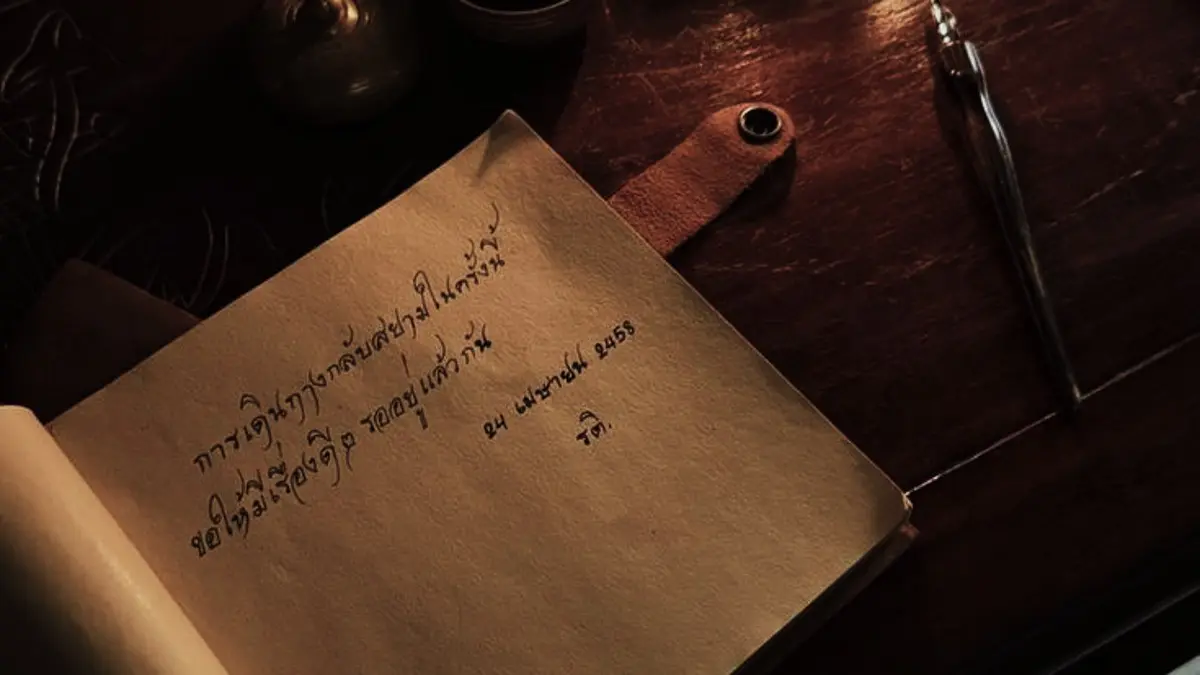 การเดินทางกลับสยามในครั้งนี้
ขอให้มีเรื่องดีๆ รออยู่แล้วกัน
24 เมษายน 2458
รติ.